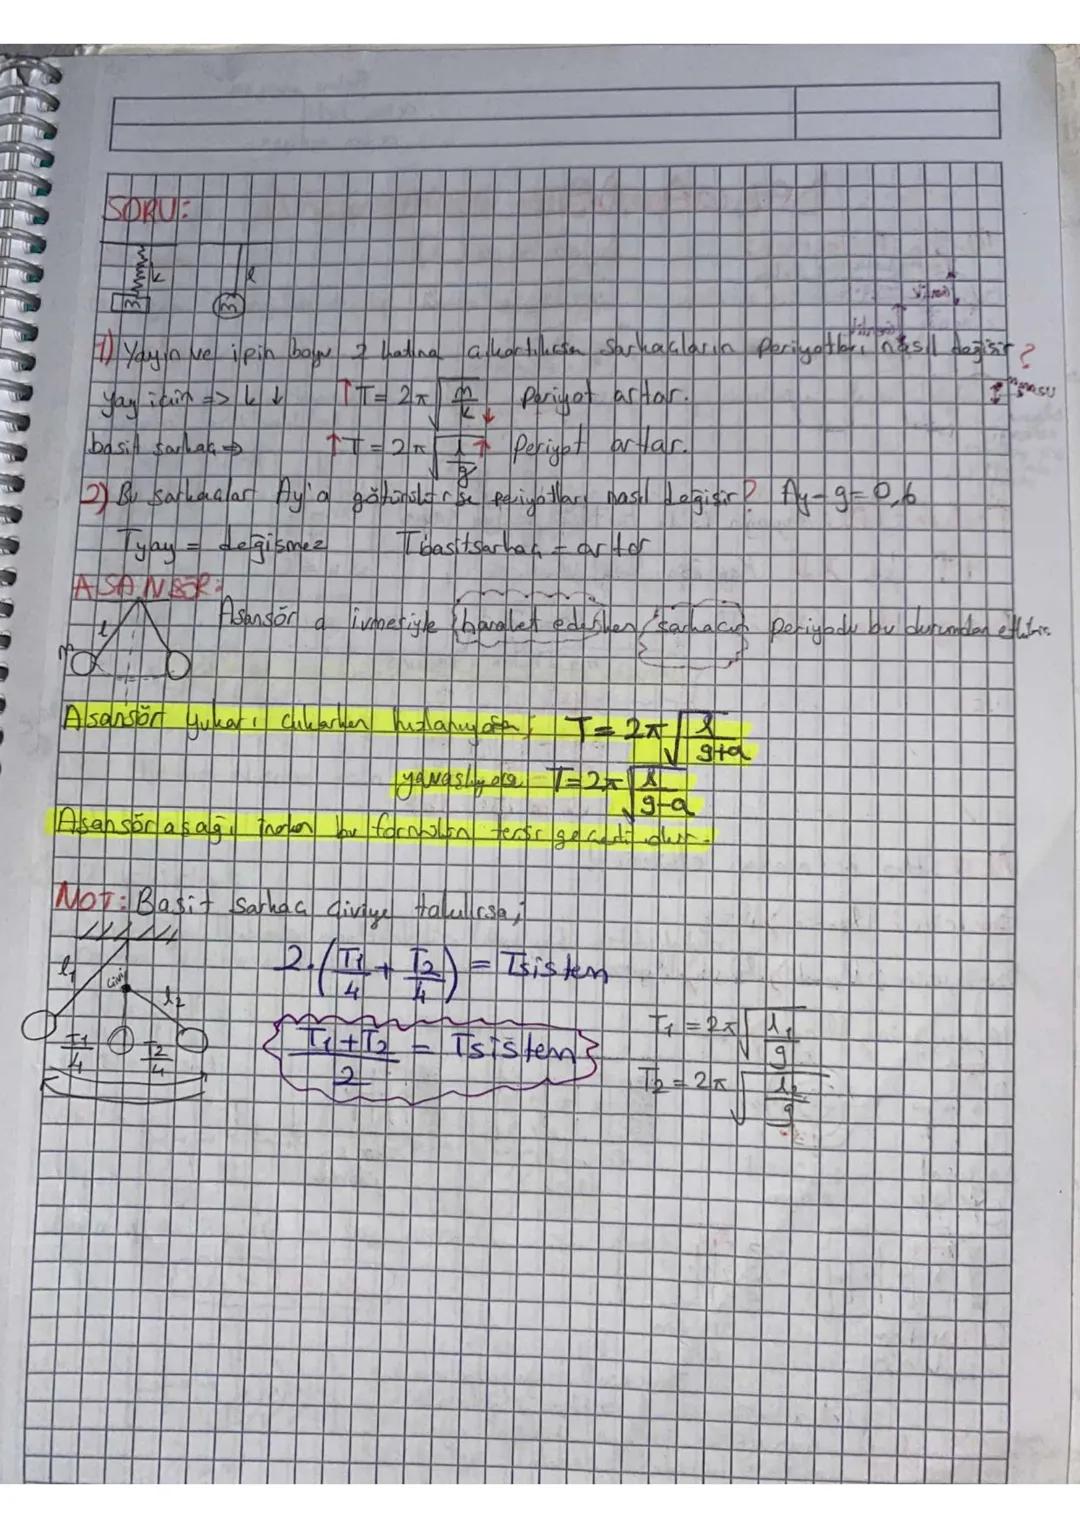 SORU:
k
l
m
m
1) Yayın ve ipin boyu 2 katına çıkartılırsa sarkaçların periyotları nasıl değişir?
yay için => k ↓ ↑T = 2π√m/k ↓ Periyot artar.
basit sarkaç => ↑T = 2π√l/g ↑ Periyot artar.
2) Bu sarkaçlar Ay'a götürülürse periyotları nasıl değişir? Ay-g=0,6
Tyay = değişmez Tbasitsarkaç = artar
ASANSÖR:
Asansör a ivmesiyle hareket ederken sarkacın periyodu bu durumdan etkilenir.
l
m
Asansör yukarı çıkarken hızlanıyorsa; T = 2π√l/g+a
yavaşlıyorsa T = 2π√l/g-a
Asansör aşağı inerken bu formülün tersi geçerli olur.
NOT: Basit sarkaç çiviye takılırsa;
l1
çivi
l2
2.(T1/4 + T2/4) = Tsistem
T1/4
T2/4
T1+T2/2 = Tsistem
T1 = 2π√l1/g
T2 = 2π√l2/g